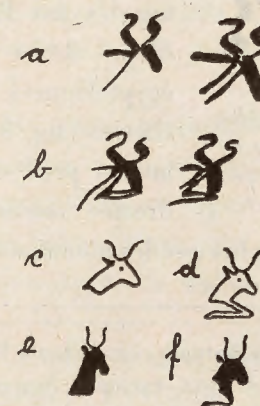 a
b
c d
e f